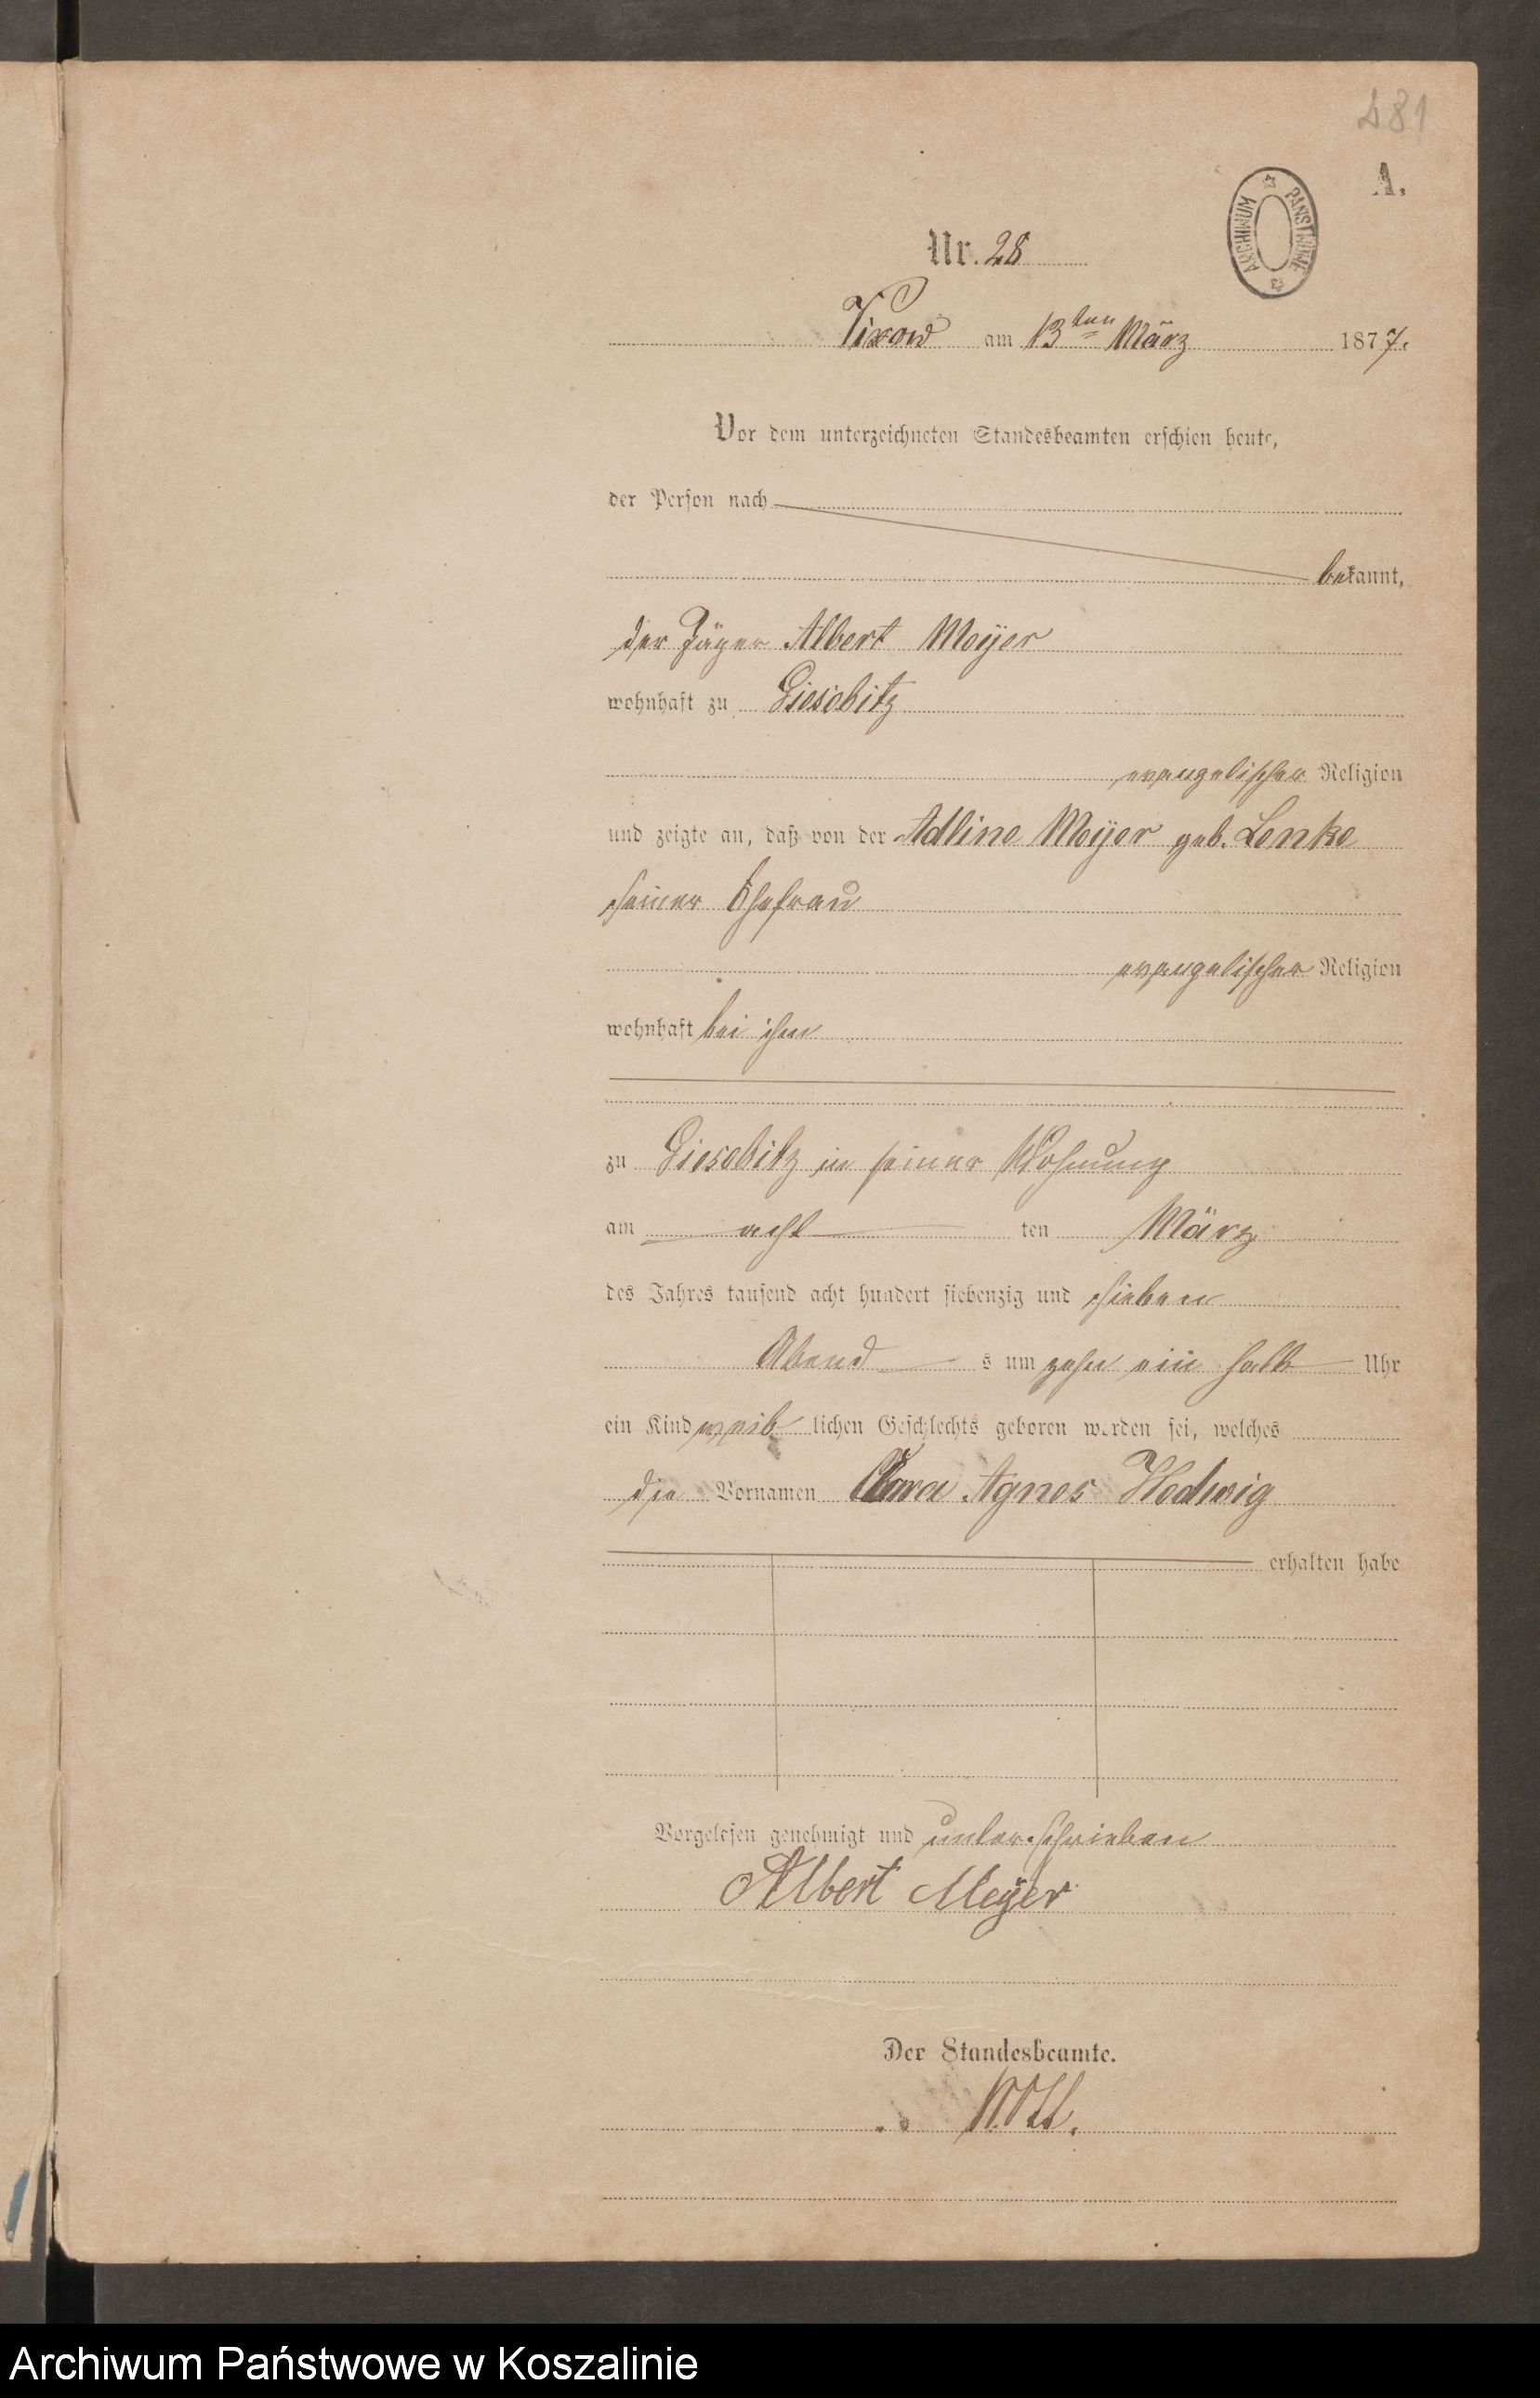 481
A.
ARCHIWUM PAŃSTWOWE
Nr. 28
Vixow am 13ten März 1877.
Vor dem unterzeichneten Standesbeamten erschien heute,
der Person nach
bekannt,
der Jäger Albert Meyer
wohnhaft zu Giesebitz
evangelischer Religion
und zeigte an, daß von der Adline Meyer geb. Lenke
seiner Ehefrau
evangelischer Religion
wohnhaft bei ihm
zu Giesebitz in seiner Wohnung
am acht ten März
des Jahres tausend acht hundert siebenzig und sieben
Abend s um zehn ein halb Uhr
ein Kind weib lichen Geschlechts geboren worden sei, welches
die Vornamen Clara Agnes Hedwig
erhalten habe
Vorgelesen genehmigt und unterschrieben
Albert Meyer
Der Standesbeamte.
Archiwum Państwowe w Koszalinie